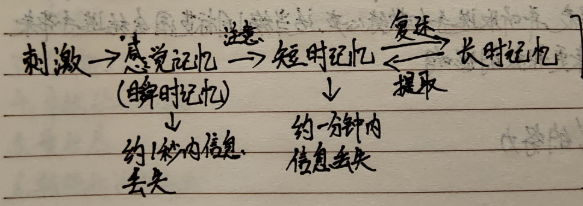 刺激→感觉记忆 注意→ 短时记忆 复述⇄提取 长时记忆
(瞬时记忆)
↓
约1秒内信息
丢失
↓
约一分钟内
信息丢失